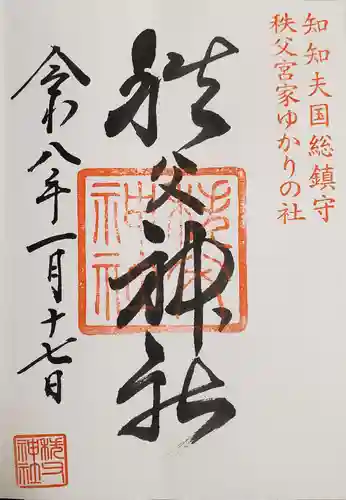 知知夫国総鎮守
秩父宮家ゆかりの社
秩父神社
令和八年一月十七日
秩父
神社
秩父
神社